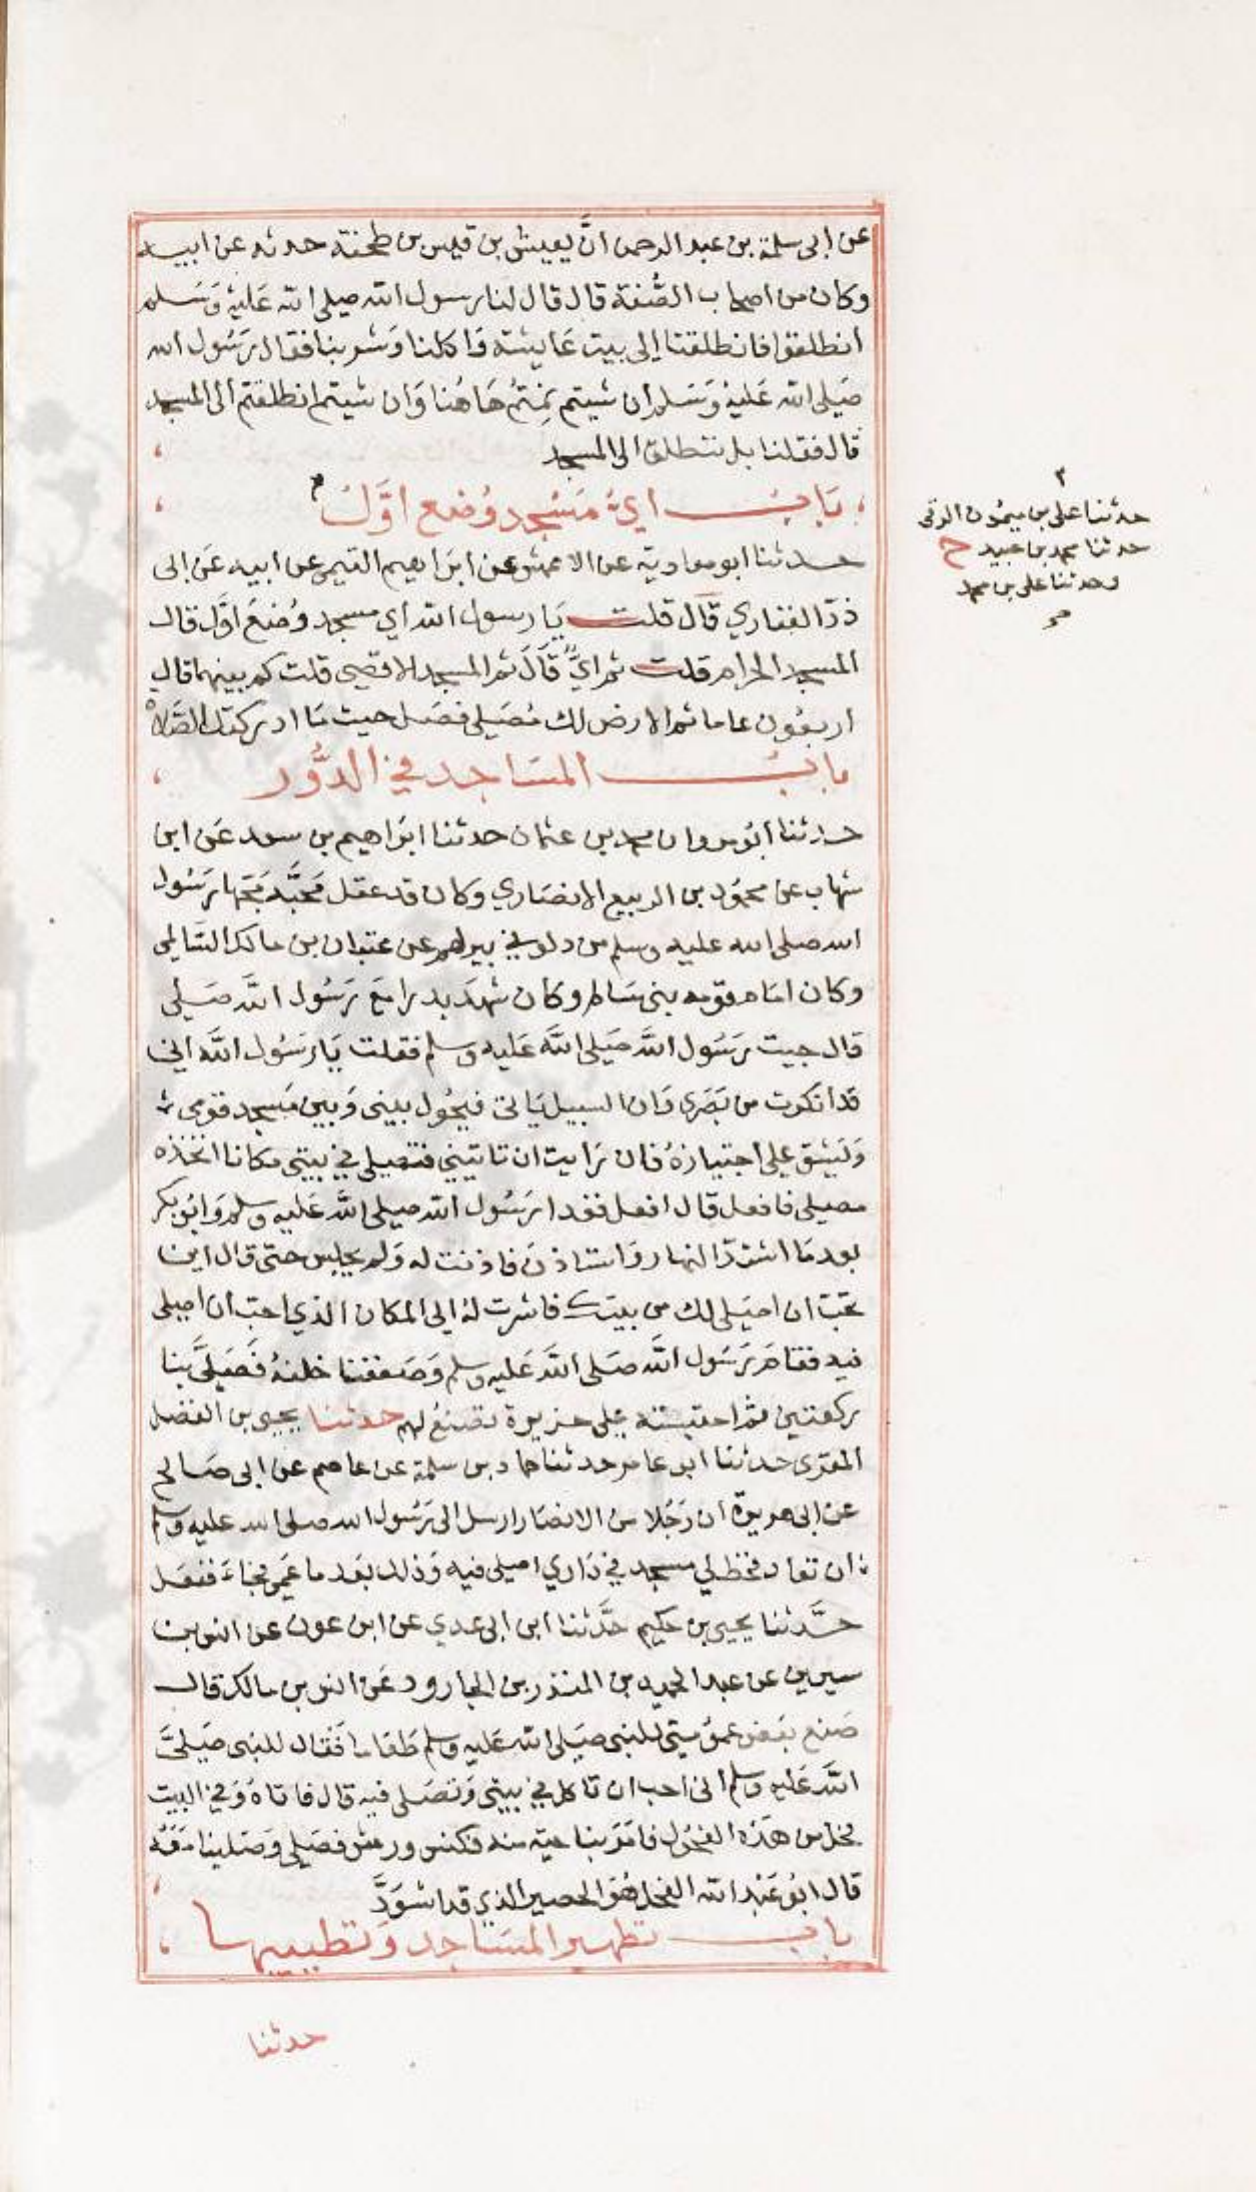 عن ابى سلمة بن عبد الرحمن انَّ يعيش بن قيس بن طخفة حدثه عن ابيه
وكان من اصحاب الصُّفة قال قال لنا رسول الله صلى الله عَليْه وَسَلم
انطلقوا فانطلقنا الى بيت عَايشة وَاكلنا وَشربنا فقال رَسُول الله
صَلى الله عَليْه وَسَلم ان شيتم نِمتُم هَاهُنا وَان شيتم انطلقتم الى المسجد
قال فقلنا بل ننطلق الى المسجد
بَابُ ايُّ مَسْجد وُضع اوَّلُ
حدثنا ابو معاوية عن الاعمش عن ابرَاهيم التيمى عن ابيه عَن ابى
ذرّ الغفاري قال قلت يَا رسول الله اي مسجد وُضعَ اوَّل قال
المسجد الحرام قلت ثم ايُّ قالَ ثم المسجد الاقصى قلت كم بينهما قال
اربعُون عاما ثم الارض لك مُصَلى فصَل حيث مَا ادركتك الصَّلاة
بابُ المسَاجد في الدُّور
حدثنا ابُو مروان محمد بن عثمان حدثنا ابرَاهيم بن سعد عَن ابن
شهاب عن محمُود بن الربيع الانصَاري وَكان قد عقل مَجَّة مَجَّها رَسُول
الله صلى الله عليه وسلم من دلو في بير لهم عن عتبان بن مالك السَّالمى
وكان امَام قومه بنى سَالم وكان شهدَ بدرا مَعَ رَسُول الله صَلى
قال جيت رَسُول اللَّه صَلى اللَّه عَليه وسلم فقلت يَا رَسُول اللَّه انى
قد انكرت من بَصَرى وَان السيل يَاتى فيحُول بينى وَبين مَسجد قومى
وَيَشق على اجتيازهُ فان رَايت ان تاتينى فتصلى في بيتى مكانا اتخذه
مصلى فافعل قال افعل فغدا رَسُول الله صلى اللَّه عَليه وسلم وَابُو بكر
بعد مَا اشتدَّ النهار وَاستاذنَ فاذنت له وَلم يجلس حتى قال اين
تحبّ ان اصَلى لك من بيتك فاشرت لهُ الى المكان الذي احبّ ان اصلى
فيه فقامَ رَسُول اللَّه صَلى اللَّه عَليه وسلم وَصَففنا خلفهُ فصَلىَّ بنا
ركعتين ثم احتبسته على خزيرة تصنعُ لهم حدثنا يحيى بن الفضل
المقرى حدثنا ابو عامر حدثنا حماد بن سلمة عن عاصم عن ابى صَالح
عن ابى هريرة ان رَجُلا من الانصَار ارسل الى رَسُول الله صلى الله عليه وسلم
ان تعال فخط لي مسجد في دَاري اصلى فيه وَذلك بعَد ما عَمي فجاءَ ففعَل
حدَّثنا يحيى بن حكيم حدَّثنا ابن ابى عدي عن ابن عون عن انس بن
سيرين عن عبد الحميد بن المنذر بن الجارود عَن انس بن مالك قال
صَنع بعَض عمُومتى للنبى صَلى الله عَليه وسلم طَعَاما فَقال للنبى صَلىَّ
اللَّه عَليه وسلم انى احب ان تاكل في بيتى وَتصَلى فيه قال فاتاهُ وَفي البيت
فحل من هَذه الفحُول فامَر بناحية منه فكنس ورش فصَلى وَصَلينا مَعَه
قال ابُو عَبْد الله الفحل هُوَ الحصير الذي قد اسْوَدَّ
باب تطهير المسَاجد وَتطييبها
حدثنا
٣
حدثنا على بن ميمُون الرقى
حدثنا محمد بن عبيد ح
وحدثنا على بن محمد
صح